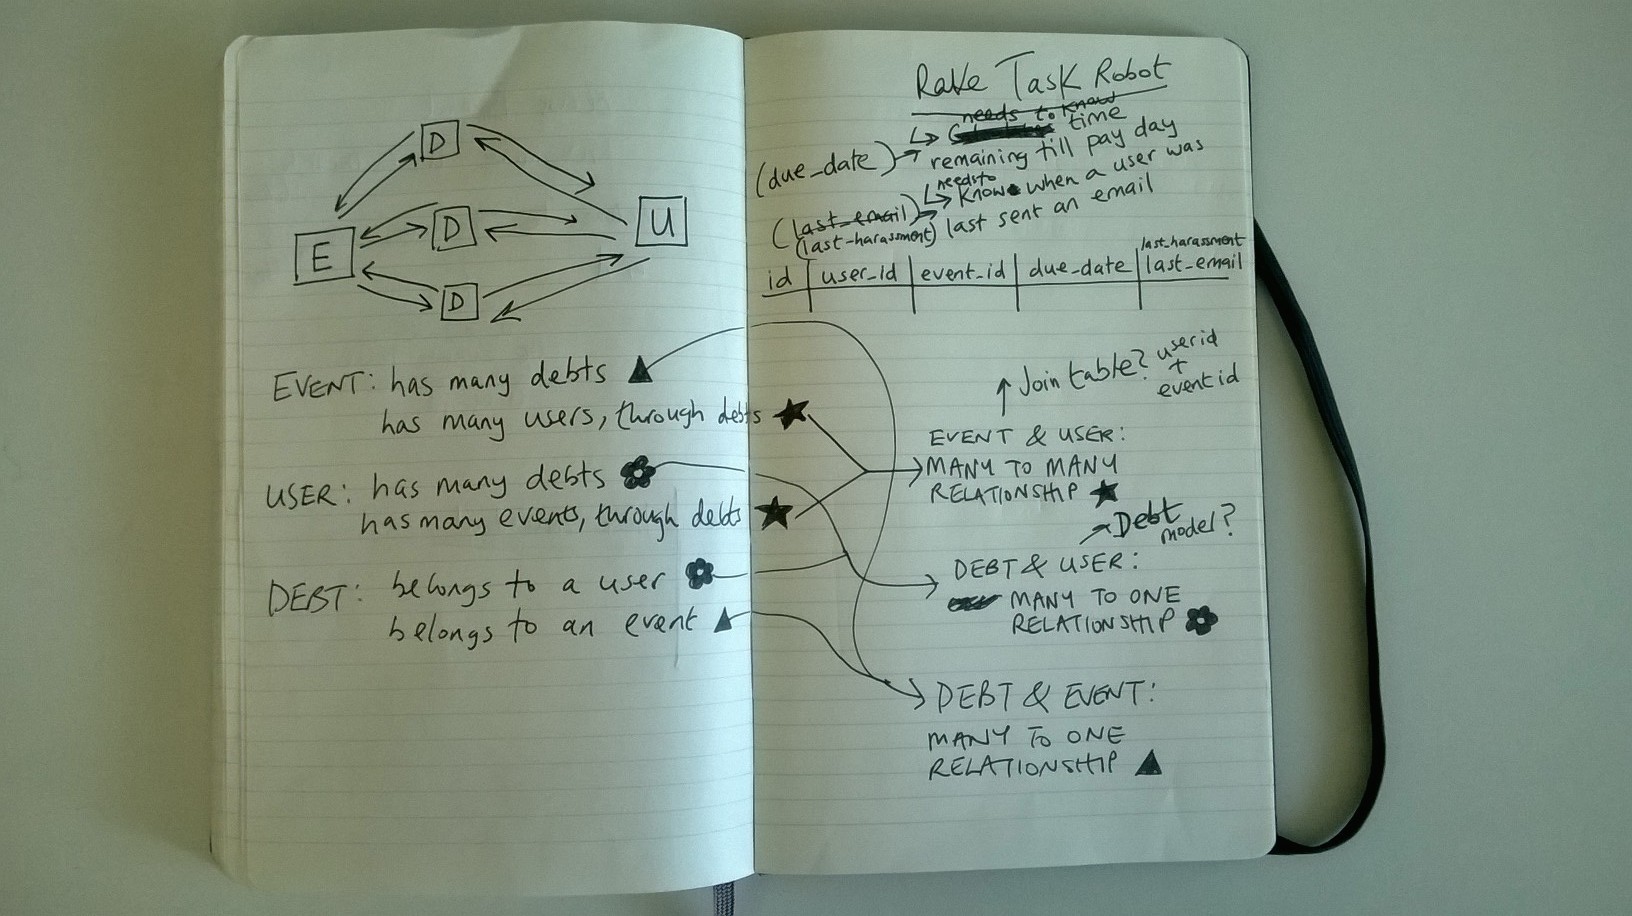 D
D
D
E
U
EVENT: has many debts
has many users, through debts
USER: has many debts
has many events, through debts
DEBT: belongs to a user
belongs to an event
Rake Task Robot
needs to know
time
(due_date) remaining till pay day
needs to
know when a user was
(last_email) last sent an email
(last-harassment)
last_harassment
id user_id event_id due_date last_email
Join table? user id
+
event id
EVENT & USER:
MANY TO MANY
RELATIONSHIP
Debt
model?
DEBT & USER:
MANY TO ONE
RELATIONSHIP
DEBT & EVENT:
MANY TO ONE
RELATIONSHIP